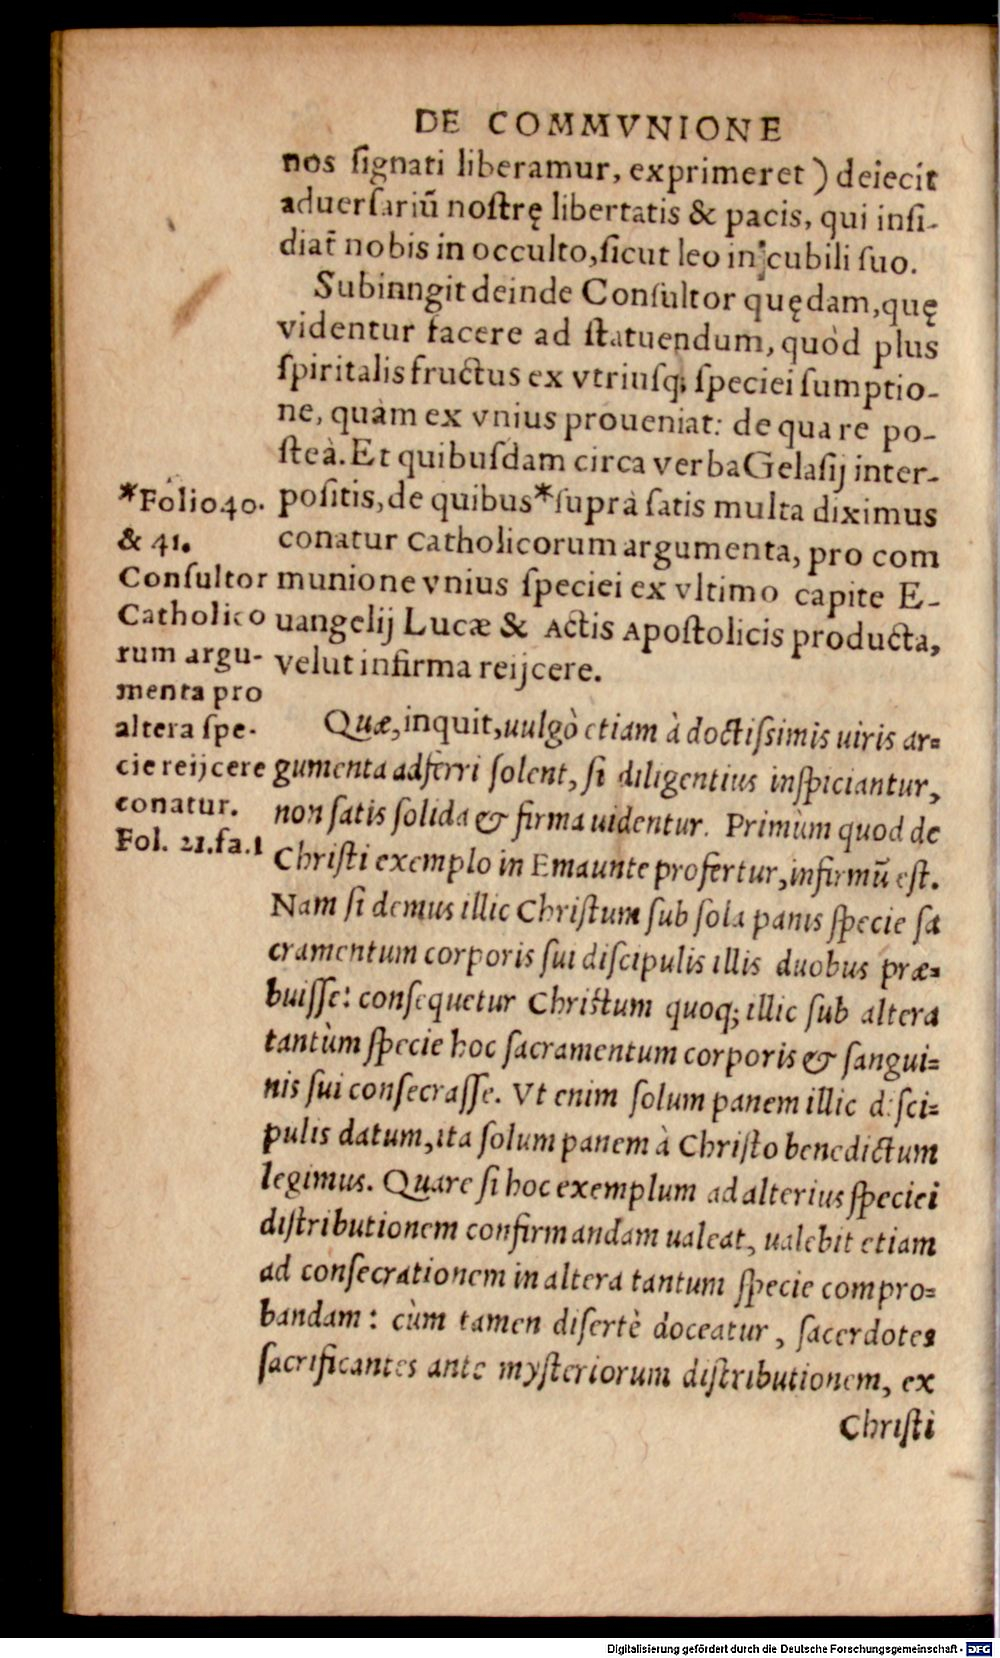 DE COMMVNIONE
nos ſignati liberamur, exprimeret) deiecit
aduerſariũ noſtrę libertatis & pacis, qui inſi-
diat̃ nobis in occulto,ſicut leo in cubili ſuo.
Subinngit deinde Conſultor quędam,quę
videntur facere ad ſtatuendum, quòd plus
ſpiritalis fructus ex vtriuſq; ſpeciei ſumptio-
ne, quàm ex vnius proueniat: de qua re po-
ſteà. Et quibuſdam circa verba Gelaſij inter-
poſitis, de quibus*ſuprà ſatis multa diximus
conatur Catholicorum argumenta, pro com
munione vnius ſpeciei ex vltimo capite E-
uangelij Lucæ & Actis Apoſtolicis producta,
velut infirma reijcere.
*Folio 40.
& 41.
Conſultor
Catholico
rum argu-
menta pro
altera ſpe-
cie reijcere
conatur.
Fol. 21.fa.1
Quæ, inquit, uulgò etiam à doctiſsimis uiris ar=
gumenta adferri ſolent, ſi diligentius inſpiciantur,
non ſatis ſolida & firma uidentur. Primùm quod de
Chriſti exemplo in Emaunte profertur, infirmũ eſt.
Nam ſi demus illic Chriſtum ſub ſola panis ſpecie ſa
cramentum corporis ſui diſcipulis illis duobus præ=
buiſſe: conſequetur Chriſtum quoq; illic ſub altera
tantùm ſpecie hoc ſacramentum corporis & ſangui=
nis ſui conſecraſſe. Vt enim ſolum panem illic diſci=
pulis datum, ita ſolum panem à Chriſto benedictum
legimus. Quare ſi hoc exemplum ad alterius ſpeciei
diſtributionem confirmandam ualeat, ualebit etiam
ad conſecrationem in altera tantum ſpecie compro=
bandam: cùm tamen diſertè doceatur, ſacerdotes
ſacrificantes ante myſteriorum diſtributionem, ex
Chriſti
Digitalisierung gefördert durch die Deutsche Forschungsgemeinschaft - DFG